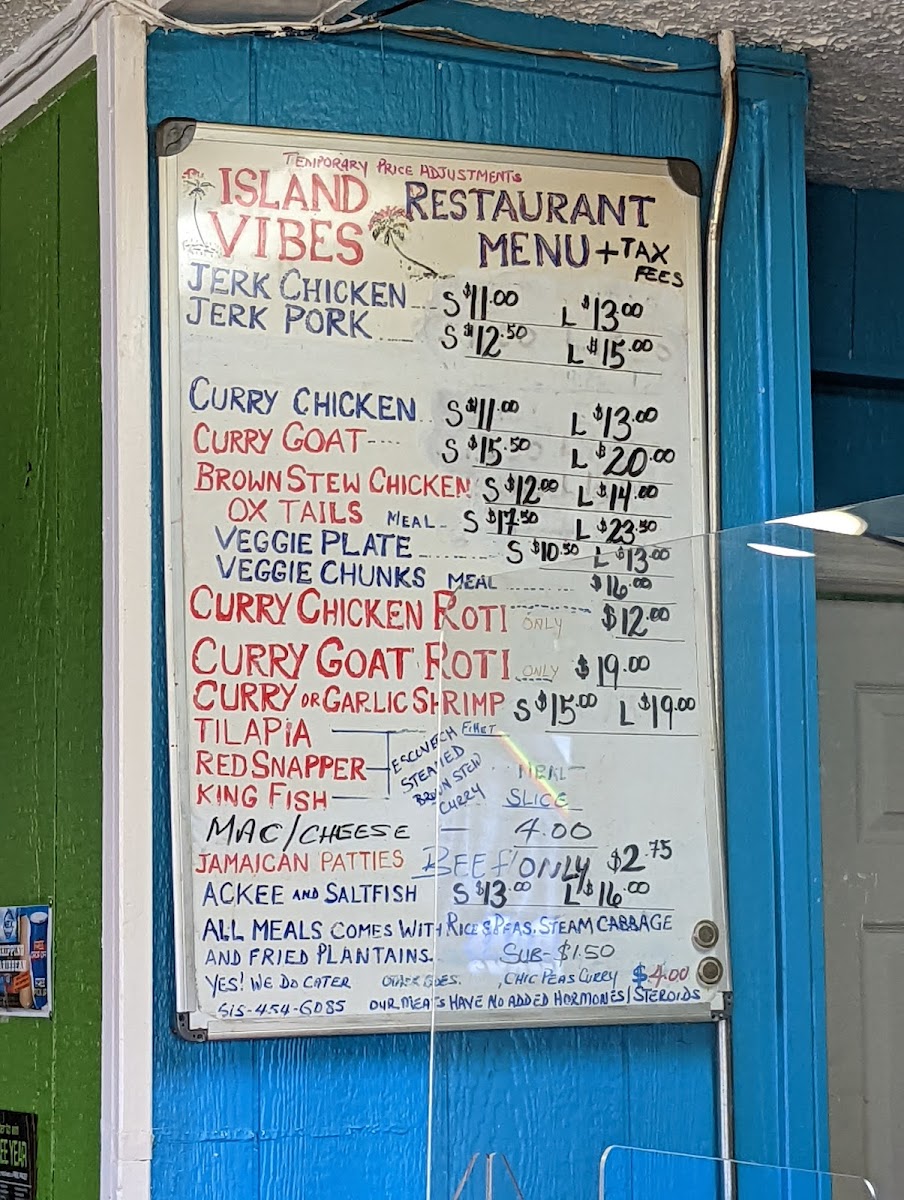 TEMPORARY PRICE ADJUSTMENTS
ISLAND VIBES RESTAURANT MENU + TAX FEES
JERK CHICKEN S $11.00 L $13.00
JERK PORK S $12.50 L $15.00
CURRY CHICKEN S $11.00 L $13.00
CURRY GOAT S $15.50 L $20.00
BROWN STEW CHICKEN S $12.00 L $14.00
OX TAILS MEAL S $17.50 L $23.50
VEGGIE PLATE S $10.50 L $13.00
VEGGIE CHUNKS MEAL $16.00
CURRY CHICKEN ROTI ONLY $12.00
CURRY GOAT ROTI ONLY $19.00
CURRY OR GARLIC SHRIMP S $15.00 L $19.00
TILAPIA FILLET
RED SNAPPER MEAL
KING FISH SLICE
ESCOVECH
STEAMED
BROWN STEW
CURRY
MAC/CHEESE — 4.00
JAMAICAN PATTIES BEEF ONLY $2.75
ACKEE AND SALTFISH S $13.00 L $16.00
ALL MEALS COMES WITH RICE & PEAS, STEAM CABBAGE
AND FRIED PLANTAINS. SUB- $1.50
YES! WE DO CATER CHIC PEAS CURRY $4.00
515-454-6085 OUR MEATS HAVE NO ADDED HORMONES/STEROIDS